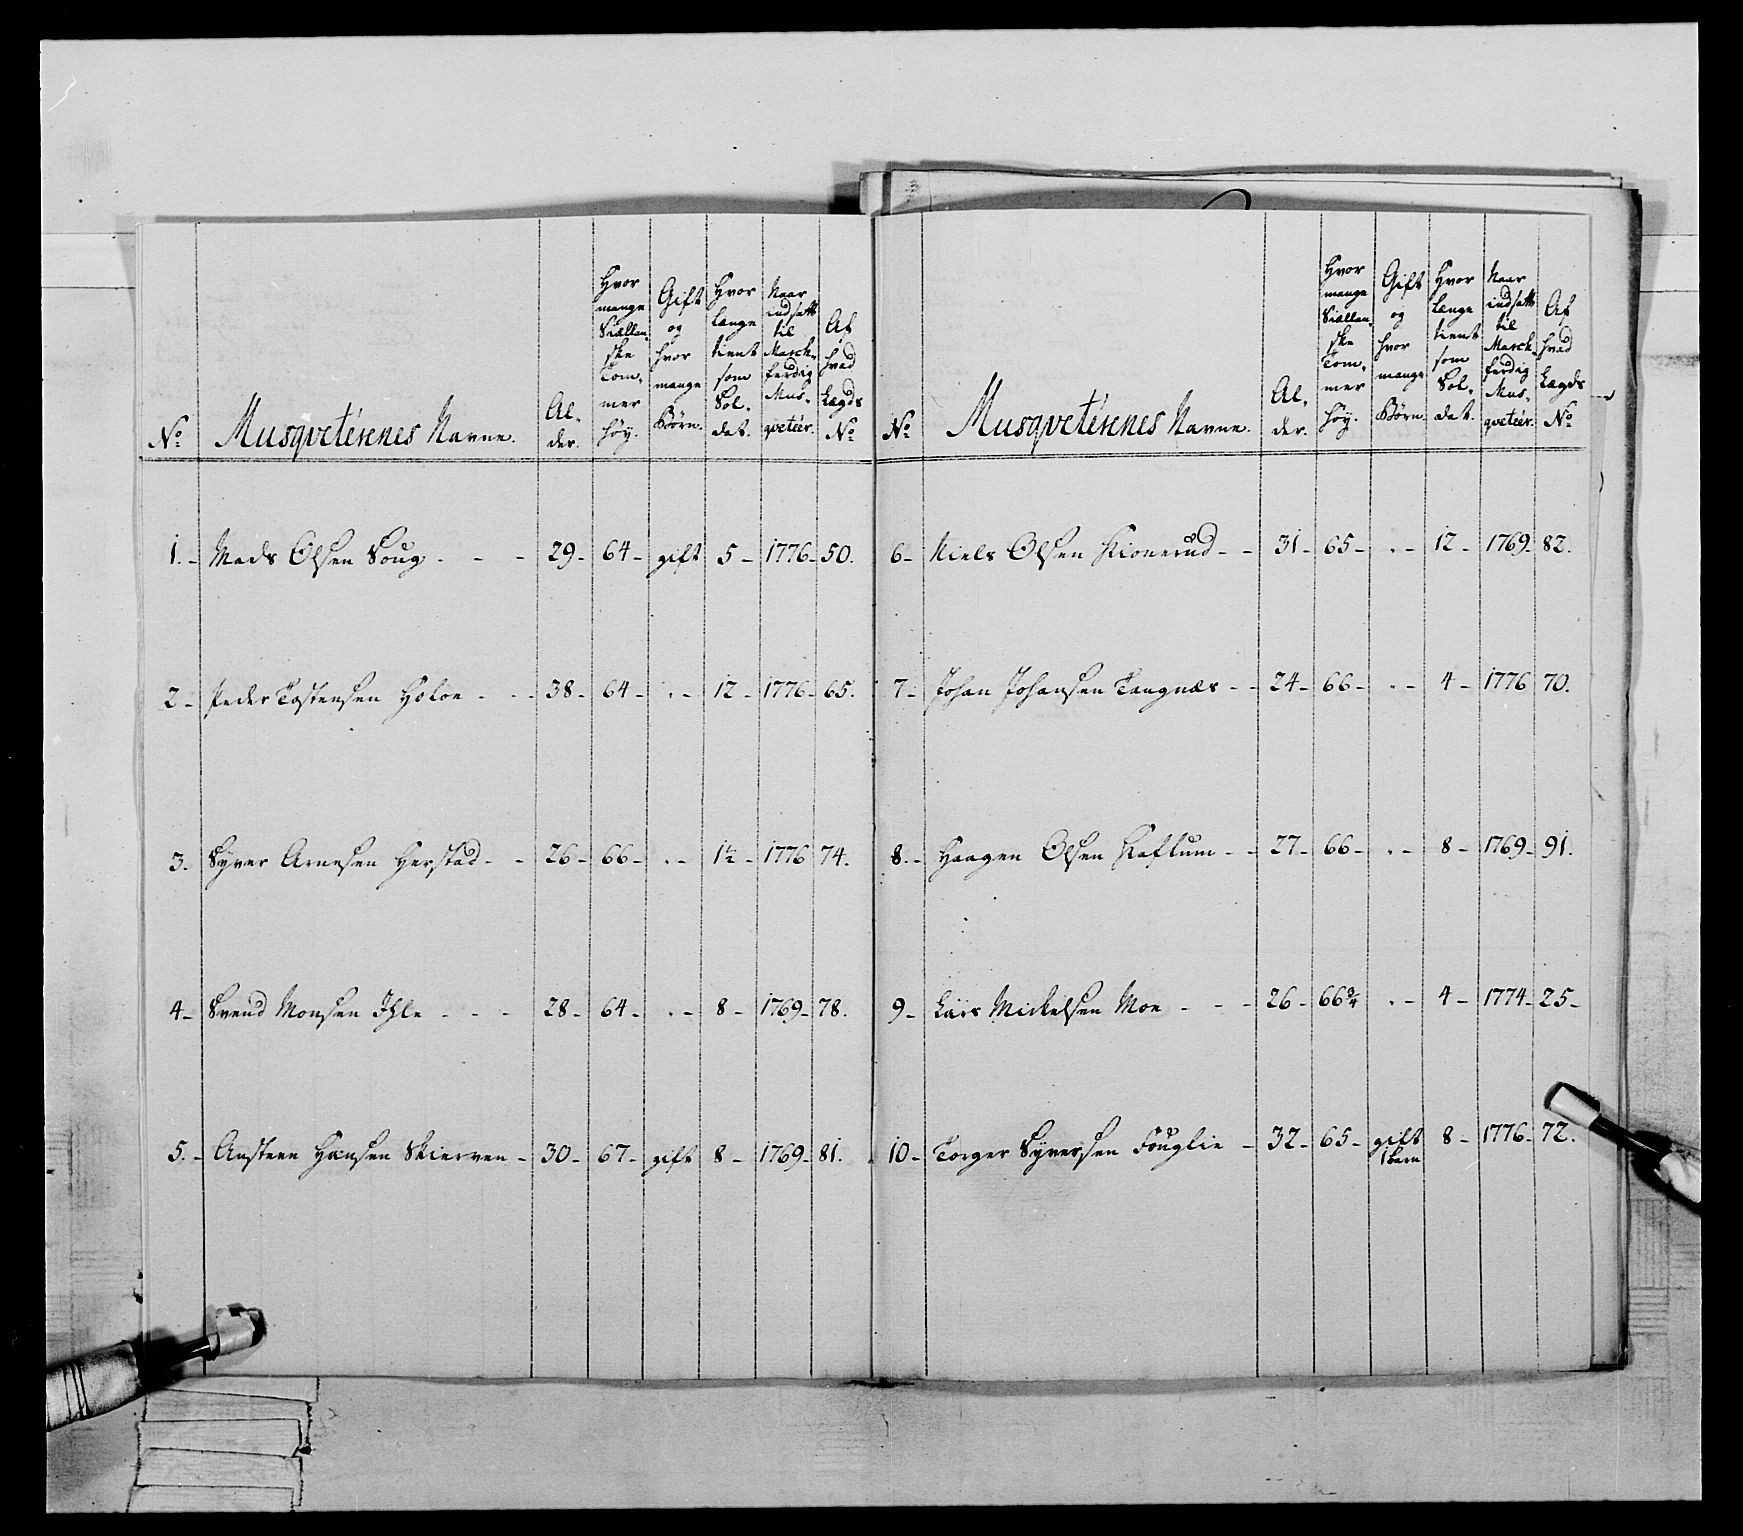 No Musqveterenes Navne. Al, der. Hvor mange Siællan, ske Tom, mer høy. Gift og hvor mange Børn. Hvor Længe tient som Sol, dat. Naar indsatt til March, færdig Mus, qveteer. Af hvad Lægds No
1. Mads Olsen Soug - - - 29 - 64 - gift 5 - 1776 - 50.
2 - Peder Tostensen - - 38 - 64 - . - 12 - 1776 - 65.
3. Syver Arnesen Herstad - - 26 - 66 - . - 1½ - 1776 74.
4 - Svend Monsen Ihle - - - 28 - 64 - . - 8 - 1769 - 78.
5. - Ansteen Hansen Skierven - 30 - 67 - gift 8 - 1769 - 81.
No Musqveterenes Navne. Al, der. Hvor mange Siællan, ske Tom, mer høy. Gift og hvor mange Børn. Hvor Længe tient som Sol, dat. Naar indsatt til March, færdig Mus, qveteer. Af hvad Lægds No
6 - Niels Olsen Kionerud - - 31 - 65 - . - 12 - 1769 - 82.
7 - Johan Johansen Tangnæs - - 24 - 66 - . - 4 - 1776 70.
8. - Haagen Olsen Haflum - - 27 - 66 - . - 8 - 1769 - 91.
9 - Lars Mickelsen Moe - - - 26 - 66¾ . - 4 - 1774 - 25 -
10 - Torger Syversen Fouglie - 32 - 65 - gift 8 - 1776 - 72.
1 barn